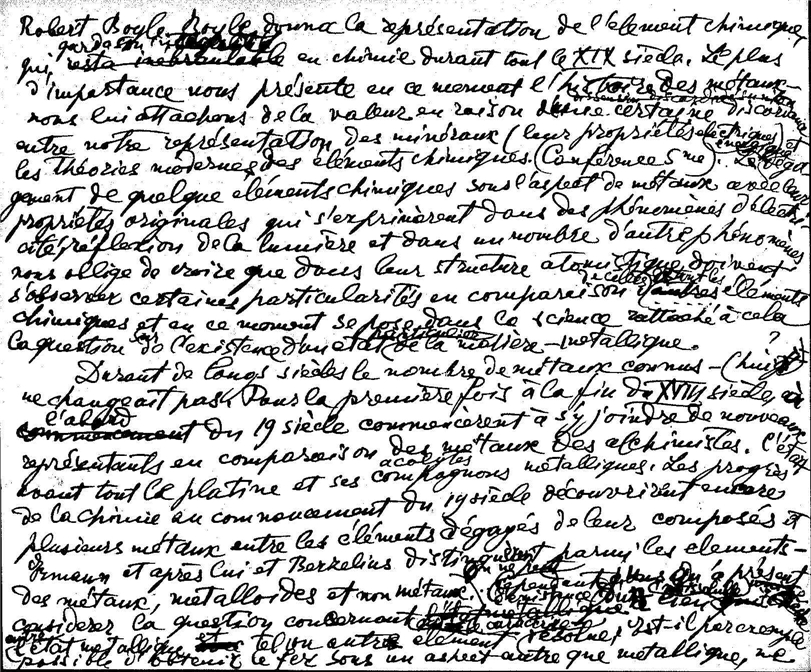 Robert Boyle Boyle donna la représentation de l'élément chimique,
garda son intégrité
qui resta inébranlable en chimie durant tout le XIX siècle. Le plus
d'importance nous présente en ce moment l'histoire des métaux –
nous lui attachons de la valeur en raison d'une certaine discor
entre notre représentation des minéraux (leur propriétés électriques) et
les théories modernes des éléments chimiques. (Conférence 5 me). Le
gement de quelque éléments chimiques sous l'aspect de métaux avec leur
propriétés originales qui s'exprimèrent dans des phénomènes d'électri
cité, réflexion de la lumière et dans un nombre d'autre phénomènes
nous oblige de croire que dans leur structure atomistique doivent
s'observer certaines particularités en comparaison éléments
chimiques et en ce moment se pose dans la science rattaché à cela
particulier
la question sur de l'existence d'un état de la matière – métallique.
?
Durant de longs siècles le nombre de métaux connus – (huit)
ne changeait pas. Pour la première fois à la fin du XVIII siècle,
l'abord
commencement du 19 siècle commencèrent à s'y joindre de nouveaux
représentants en comparaison des métaux des alchimistes. C'était
acolytes
avant tout le platine et ses compagnons métalliques. Les progrès
de la chimie au commencement du 19 siècle découvrirent encore
plusieurs métaux entre les éléments dégagés de leur composés et
Ermann et après lui et Berzelius distinguèrent parmi les elements –
ne peut
des métaux, métalloides et non métaux. Cependant
considerer la question concernant
l'état métallique tel ou autre element résolue; est-il par exemple
possible d'obtenir le fer sous un aspect autre que metallique, ne